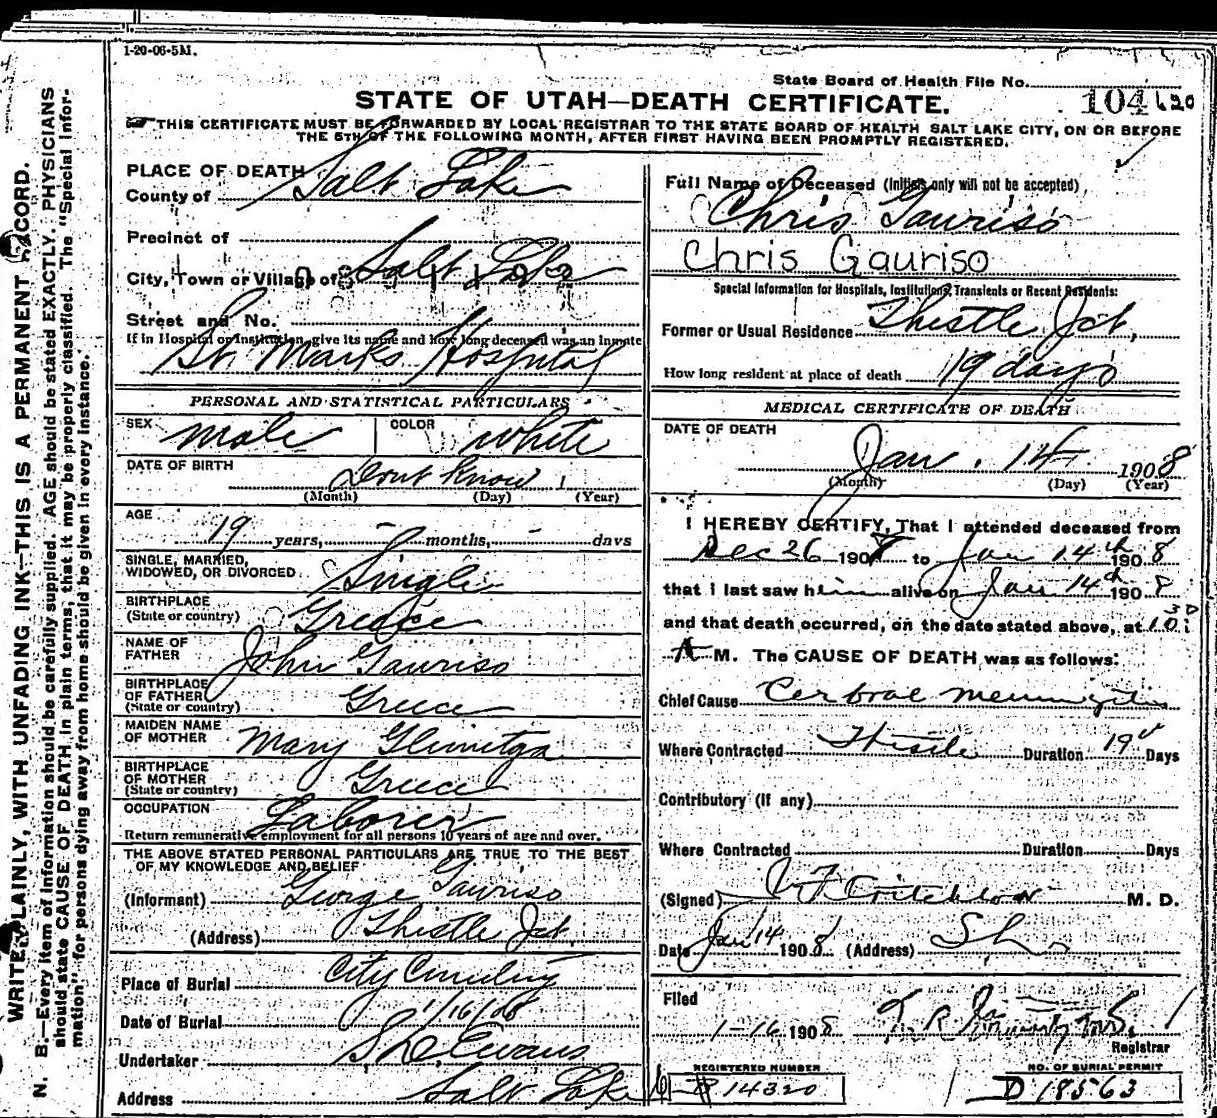 1-20-06-5M.
State Board of Health File No. 104
STATE OF UTAH—DEATH CERTIFICATE.
THIS CERTIFICATE MUST BE FORWARDED BY LOCAL REGISTRAR TO THE STATE BOARD OF HEALTH SALT LAKE CITY, ON OR BEFORE
THE 5TH OF THE FOLLOWING MONTH, AFTER FIRST HAVING BEEN PROMPTLY REGISTERED.
WRITE PLAINLY, WITH UNFADING INK—THIS IS A PERMANENT RECORD.
N. B.—Every item of information should be carefully supplied. AGE should be stated EXACTLY. PHYSICIANS
should state CAUSE OF DEATH in plain terms, that it may be properly classified. The "Special Infor-
mation" for persons dying away from home should be given in every instance.
PLACE OF DEATH
County of Salt Lake
Precinct of
City, Town or Village of Salt Lake
Street and No.
If in Hospital or Institution, give its name and how long deceased was an inmate
St. Marks Hospital
PERSONAL AND STATISTICAL PARTICULARS
SEX male COLOR white
DATE OF BIRTH Dont Know
(Month) (Day) (Year)
AGE
19 years, - months, - days
SINGLE, MARRIED,
WIDOWED, OR DIVORCED Single
BIRTHPLACE
(State or country) Greece
NAME OF
FATHER John Gauriso
BIRTHPLACE
OF FATHER
(State or country) Greece
MAIDEN NAME
OF MOTHER Mary
BIRTHPLACE
OF MOTHER
(State or country) Greece
OCCUPATION Laborer
Return remunerative employment for all persons 10 years of age and over.
THE ABOVE STATED PERSONAL PARTICULARS ARE TRUE TO THE BEST
OF MY KNOWLEDGE AND BELIEF
(Informant) George Gauriso
(Address) Thistle Jct.
Place of Burial City Cemetery
Date of Burial 1/16/08
Undertaker Evans
Address Salt Lake
Full Name of Deceased (Initials only will not be accepted)
Chris Gauriso
Chris Gauriso
Special Information for Hospitals, Institutions, Transients or Recent Residents:
Former or Usual Residence Thistle Jct.,
How long resident at place of death 19 days
MEDICAL CERTIFICATE OF DEATH
DATE OF DEATH
Jan. 14 1908
(Month) (Day) (Year)
I HEREBY CERTIFY, That I attended deceased from
Dec 26 190 to Jan 14th 1908
that I last saw him alive on Jan 14th 1908
and that death occurred, on the date stated above, at 10
A M. The CAUSE OF DEATH was as follows:
Chief Cause Cerbral meningitis
Where Contracted Thistle Duration 19 Days
Contributory (if any)
Where Contracted Duration Days
(Signed) Critchlow M. D.
Date Jan 14 1908 (Address)
Filed
1-16 1908
Registrar
REGISTERED NUMBER
14320
NO. OF BURIAL PERMIT
D 18563